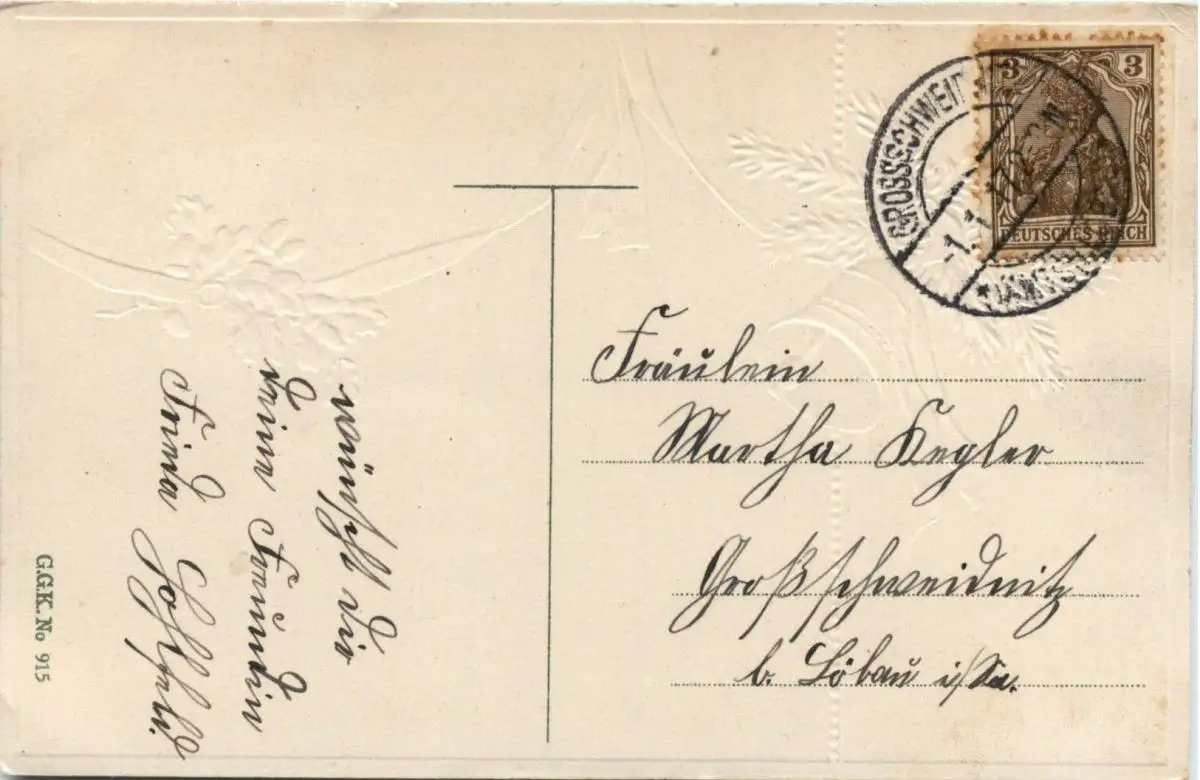 wünscht dir
deine Freundin
Frieda
G.G.K. No 915
3 3
DEUTSCHES REICH
GROSSSCHWEID
-1.1.
Fräulein
Martha Kegler
Großschweidnitz
b. Löbau i/Sa.